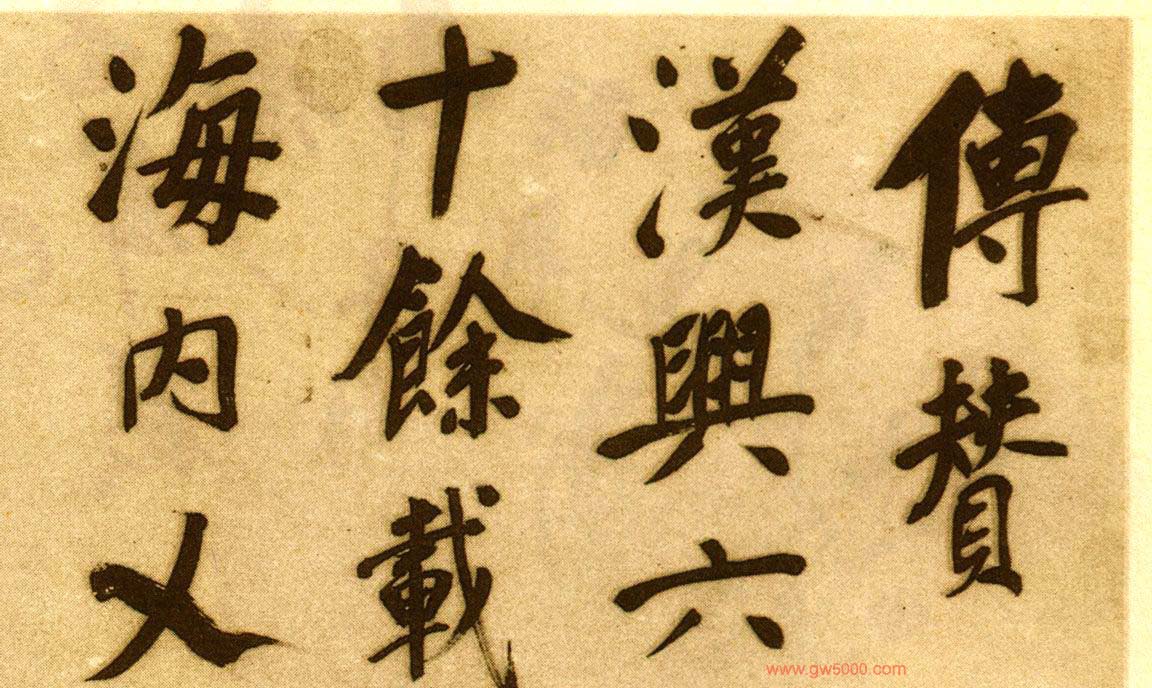 傳贊
漢興六
十餘載
海内乂
www.gw5000.com